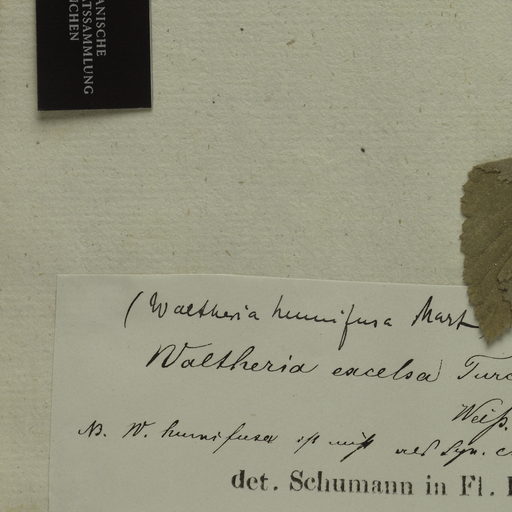 ANISCHE
TSSAMMLUNG
CHEN
(Waltheria humifusa Mart
Waltheria excelsa Turc
Weiß.
NB. W. humifusa ist nicht als Syn.
det. Schumann in Fl.